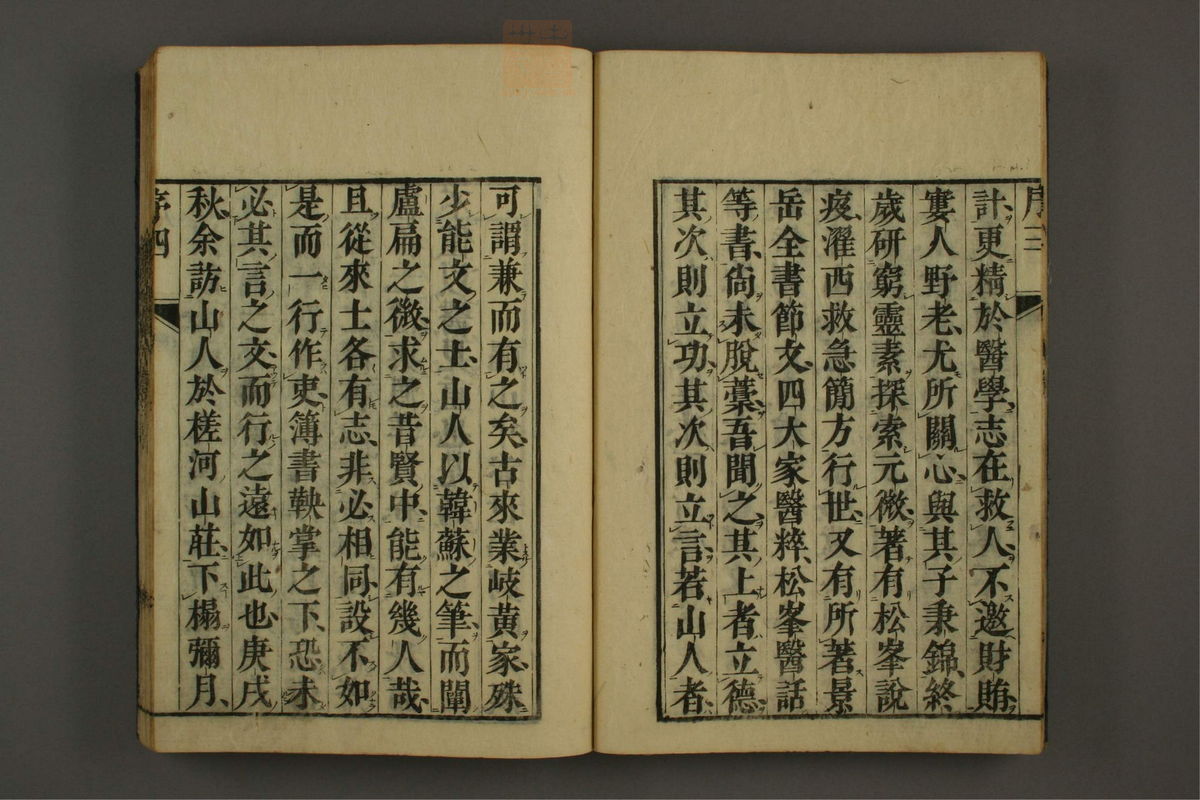 序三
計更精於醫學志在救人不邀財賄
寠人野老尤所關心與其子秉錦終
歲研窮靈素探索元微著有松峯說
疫濯西救急簡方行世又有所著景
岳全書節文四大家醫粹松峯醫話
等書尙未脫藁吾聞之其上者立德
其次則立功其次則立言若山人者
可謂兼而有之矣古來業岐黃家殊
少能文之士山人以韓蘇之筆而闡
盧扁之微求之昔賢中能有幾人哉
且從來士各有志非必相同設不如
是而一行作吏簿書鞅掌之下恐未
必其言之文而行之遠如此也庚戌
秋余訪山人於槎河山莊下榻彌月
序四